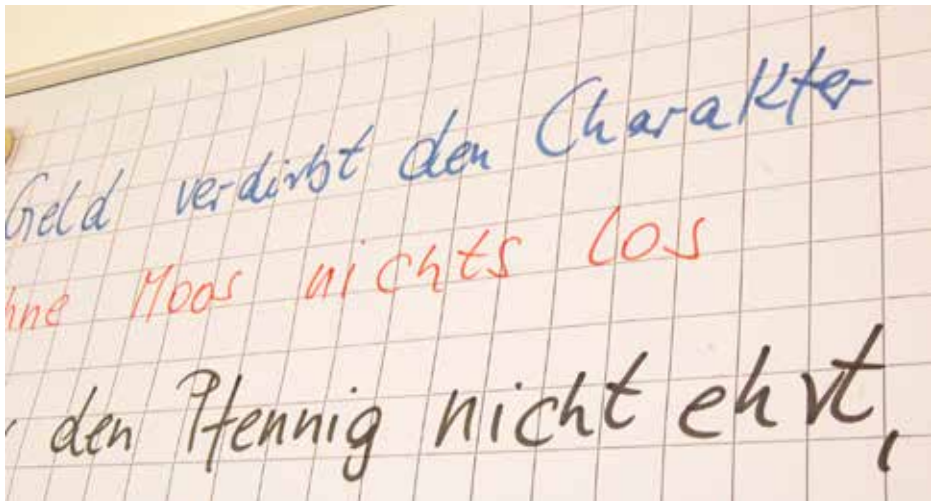 Geld verdirbt den Charakter
hne Moos nichts los
den Pfennig nicht ehrt,